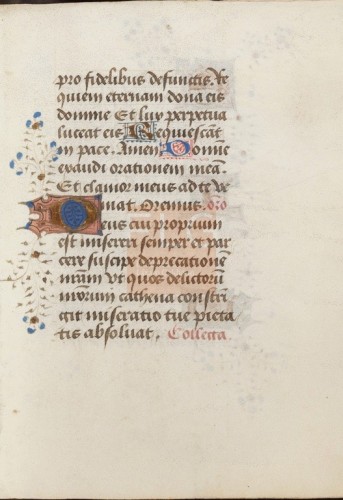 pro fidelibus defunctis. Re
quiem eternam dona eis
domine Et lux perpetua
luceat eis Requiescāt
in pace. Amen Domine
exaudi orationem meā.
Et clamor meus ad te ve
niat. Oremus. oro
Deus cui proprium
est misereri semper et par
cere suscipe deprecationē
nr̄am vt quos delictorū
nr̄orum cathena constrī
git miseratio tue pieta
tis absoluat. Collecta